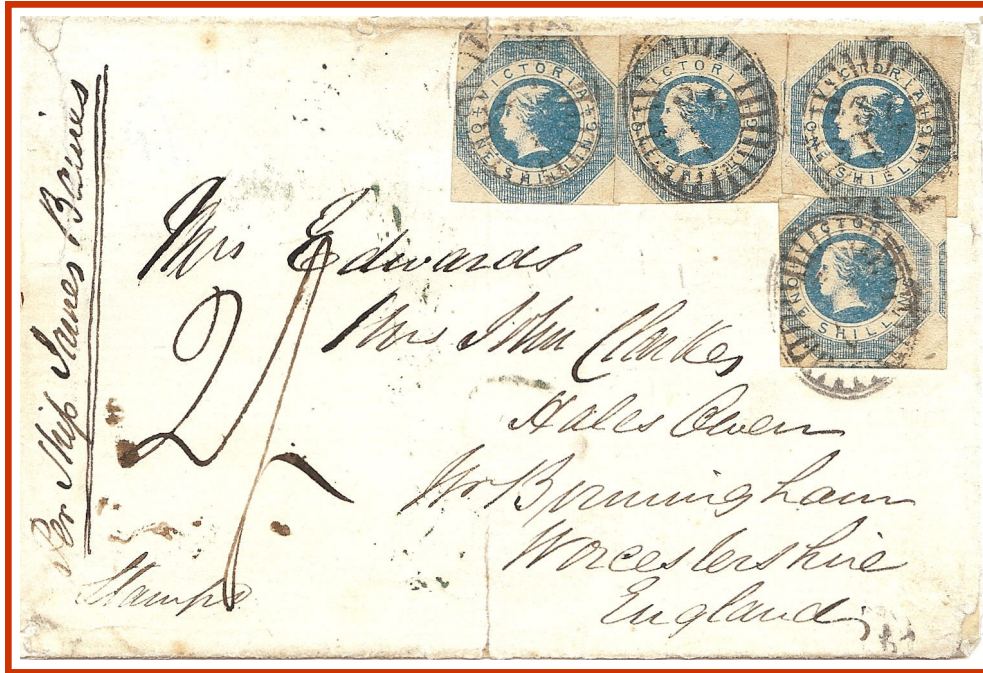 Per Ship James Baines
VICTORIA
ONE SHILLING
VICTORIA
ONE SHILLING
VICTORIA
ONE SHILLING
VICTORIA
ONE SHILLING
Mrs Edwards
2/
Mrs John Clarkes
Hales Owen
Nr Birmingham
Worcestershire
England
Stamps